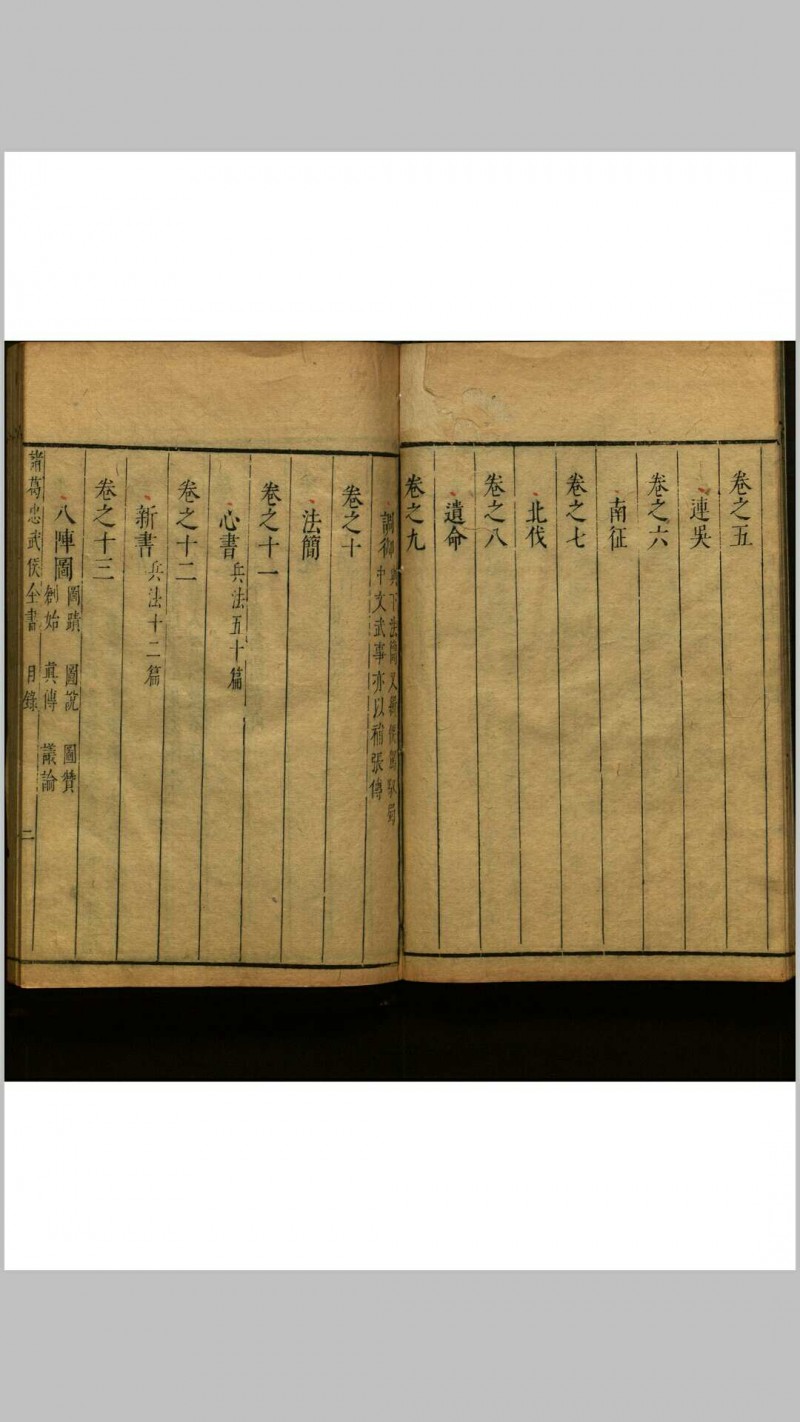 卷之五
連吳
卷之六
南征
卷之七
北伐
卷之八
遺命
卷之九
調御
中文武事亦以補張傳
卷之十
法簡
卷之十一
心書 兵法五十篇
卷之十二
新書 兵法十二篇
卷之十三
八陣圖 圖蹟 圖說 圖贊
創始 真傳 議論
諸葛忠武侯全書 目錄 二